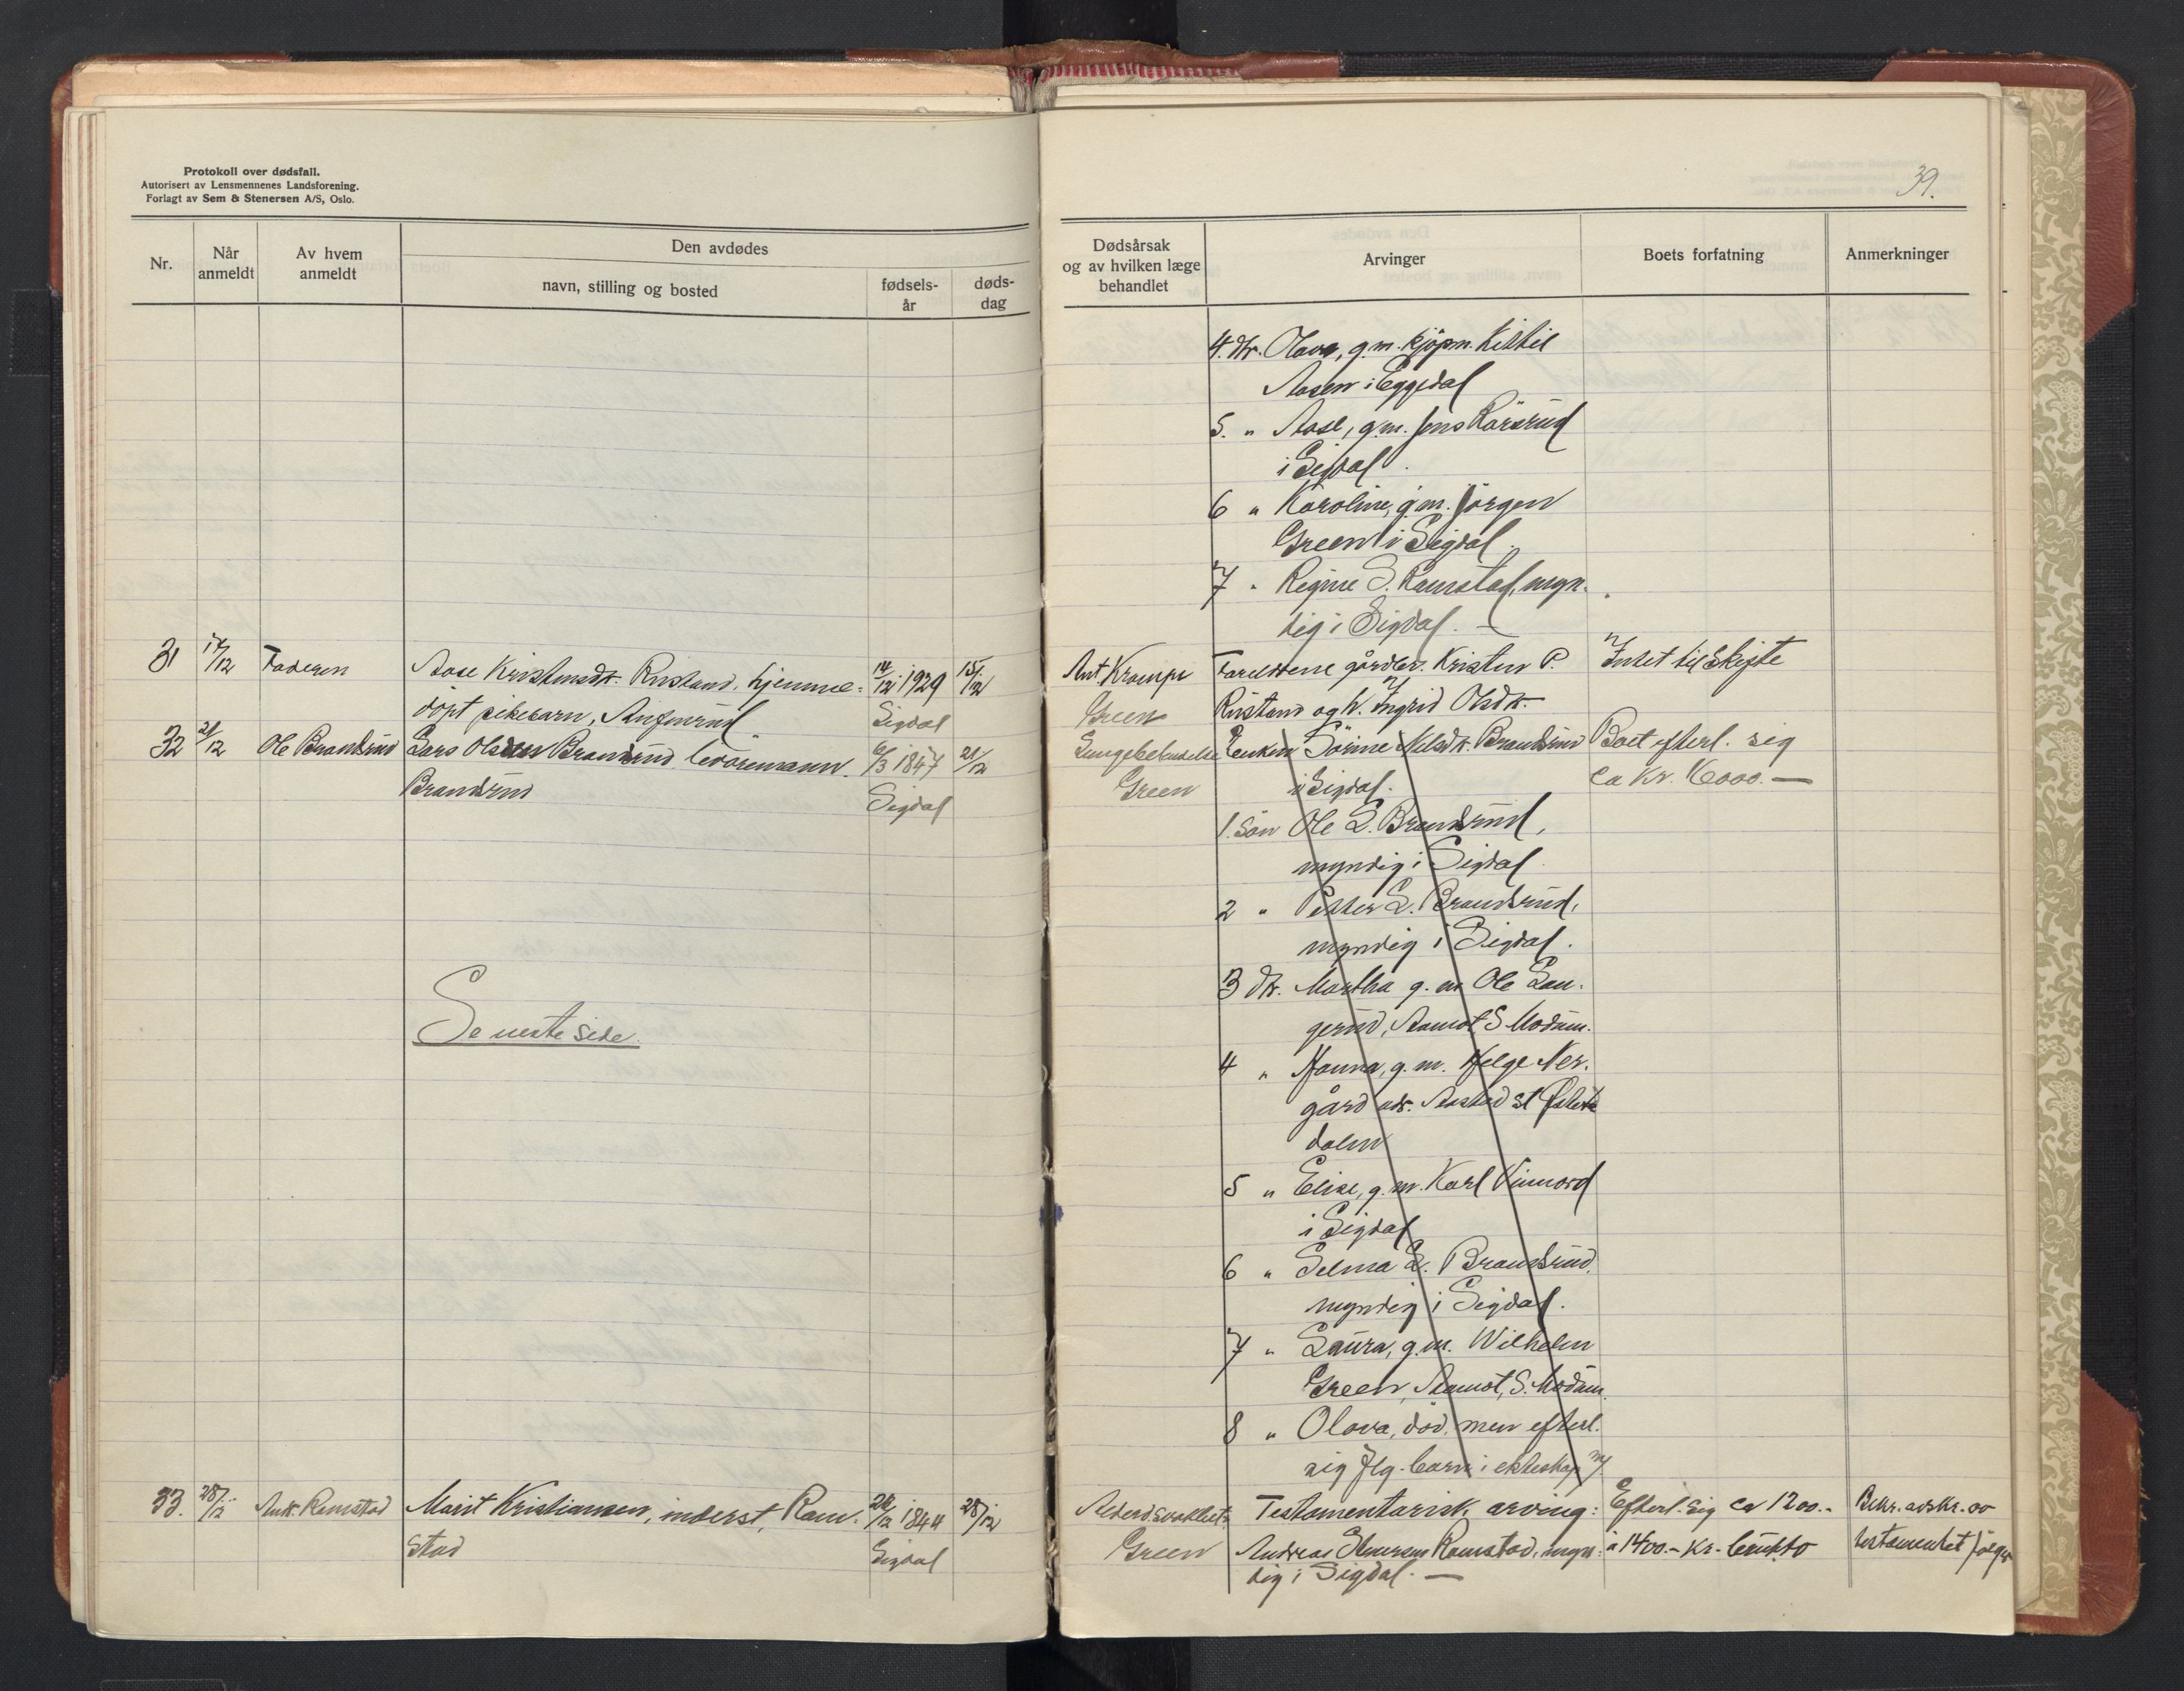 Protokoll over dødsfall.
Autorisert av Lensmennenes Landsforening.
Forlagt av Sem & Stenersen A/S, Oslo.
Nr.
Når
anmeldt
Av hvem
anmeldt
Den avdødes
navn, stilling og bosted
fødsels-
år
døds-
dag
31 17/12 Faderen Aase Kristensdtr. Rustand, hjemme- 14/12 1929 15/12
døpt pikebarn, Sigdal
32 21/12 Ole Brandsrud Lars Olsen Brandsrud levøremann. 6/3 1847 21/12
Brandsrud Sigdal
Se neste side.
33. 28/12 Andr. Ramstad Marit Kristiansen, inderst, Ram- 1844 28/12
stad Sigdal
39.
Dødsårsak
og av hvilken læge
behandlet
Arvinger
Boets forfatning
Anmerkninger
4. dtr. Olava, g.m. kjøpm. Kittil
Aasen i Eggedal
5. " Aase, g.m. Jens
i Sigdal.
6 " Karoline, g.m. Jørgen
Green i Sigdal.
7 " Regine S. Ramstad, myn-
dig i Sigdal. —
Ant Krampe Foreldrene gårdbr. Kristen P. Intet til skifte
Green Rustand og h. Ingrid Olsdtr.
Lungebetendelse Enken Sørine Nelsdtr. Brandsrud Boet efterl. sig
Green i Sigdal. ca kr. 6000. —
1. søn Ole L. Brandsrud,
myndig i Sigdal.
2 " Petter L. Brandsrud,
myndig i Sigdal.
3 dtr. Martha g.m. Ole Lan-
gerud, Aamot S Modum.
4 " Hanna, g.m. Helge Ner-
gård adr. st Øster-
dalen
5 " Elise, g.m. Karl
i Sigdal
6 " Selma L. Brandsrud
myndig i Sigdal.
7 " Laura, g.m. Wilhelm
Green, Aamot, S. Modum.
8 " Olava, død, men efterl.
sig flg. barn i ekteskap m/
Testamentarisk arving: Efterl. sig ca 1200.- Bekr. avskr. av
Green Andreas Ramstad, myn- à 1400.- kr. brutto testamentet følger
dig i Sigdal. —